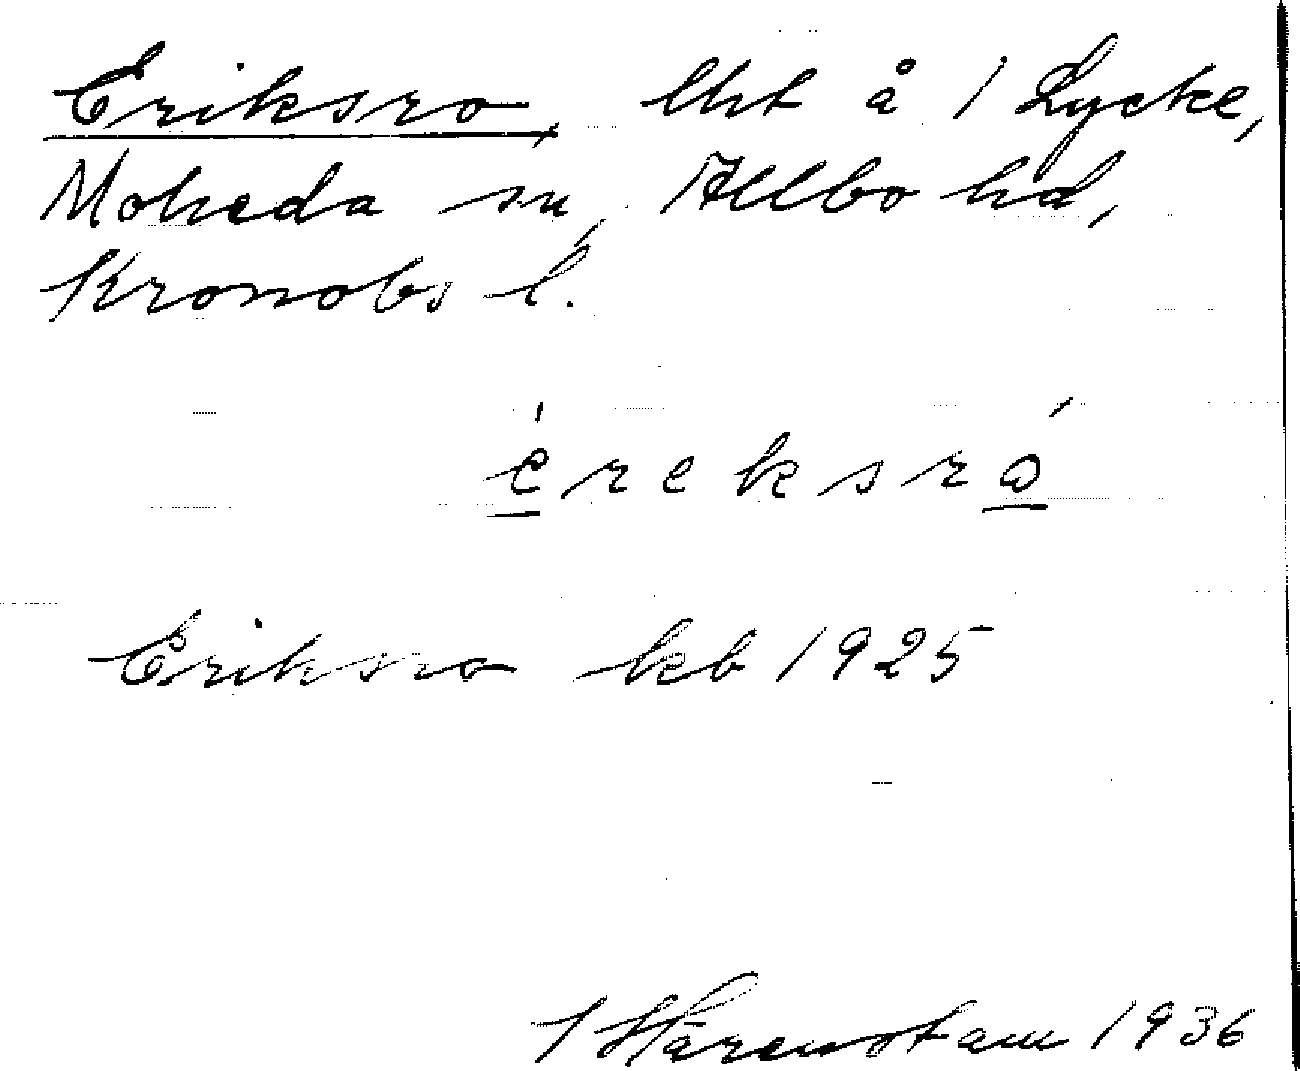 Eriksro, lht å 1 Lycke,
Moheda sn, Allbo hd,
Kronobs l.
éreksró
Eriksro kb 1925
I Härenstam 1936